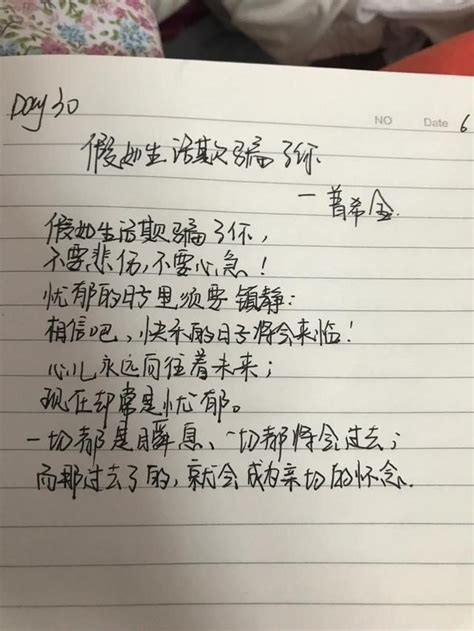 Day 30
NO Date 6
假如生活欺骗了你
—普希金
假如生活欺骗了你,
不要悲伤,不要心急!
忧郁的日子里须要镇静:
相信吧,快乐的日子将会来临!
心儿永远向往着未来;
现在却常是忧郁。
一切都是瞬息、一切都将会过去;
而那过去了的,就会成为亲切的怀念.